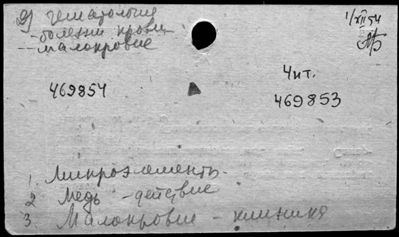 гематология
- болезни крови
- малокровие
1/XII 54
Чит.
469854
469853
1 Микроэлементы.
2 Медь - действие
3 Малокровие - клиника